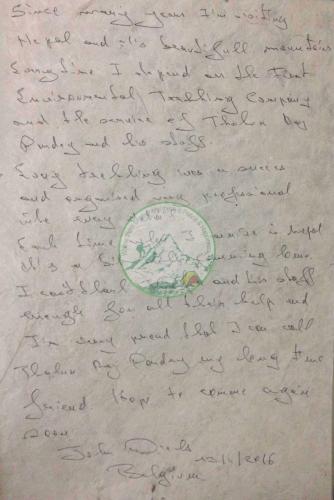 Since many years I'm visiting
Nepal and it's beautifull mountains
Everytime I depend on the First
Environmental Trekking Company
and the service of Thakur Raj
Pandey and his staff.
Every trekking was a succes
and organised very profesional
the way
Each time I in Nepal
it's a coming home.
I can't thank and his staff
enough for all their help and
I'm very proud that I can call
Thakur Raj Pandey my long time
friend. I hope to comme again
soon
John
Belgium 13/11/2016